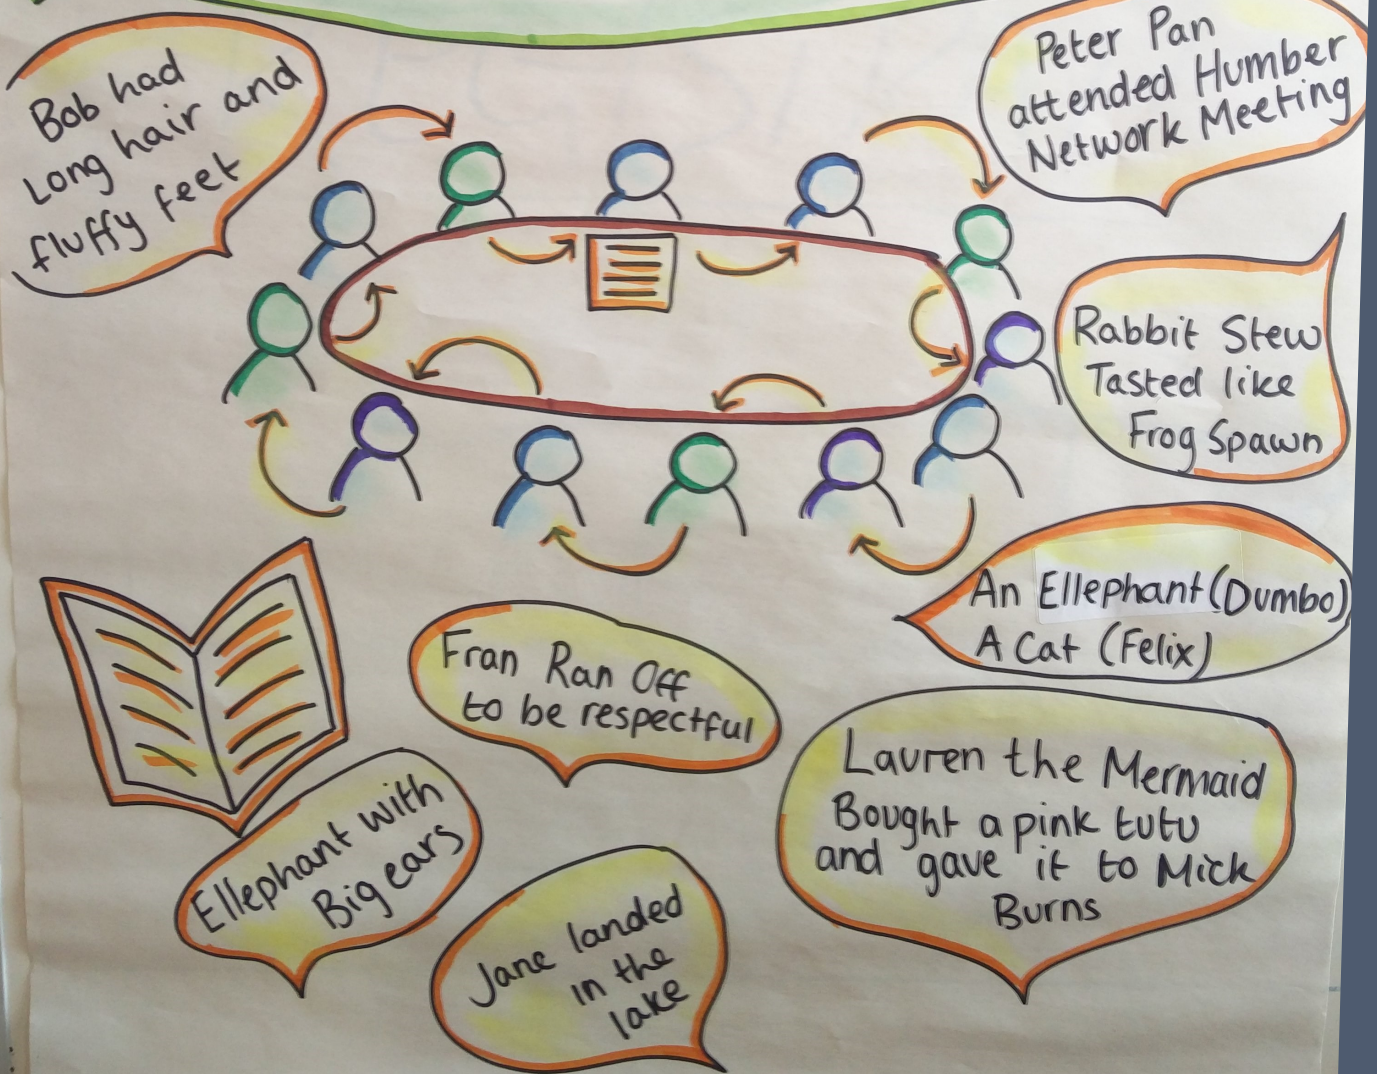 Bob had
Long hair and
fluffy feet
Peter Pan
attended Humber
Network Meeting
Rabbit Stew
Tasted like
Frog Spawn
An Ellephant (Dumbo)
A Cat (Felix)
Fran Ran Off
to be respectful
Lauren the Mermaid
Bought a pink tutu
and gave it to Mick
Burns
Ellephant with
Big ears
Jane landed
in the
lake